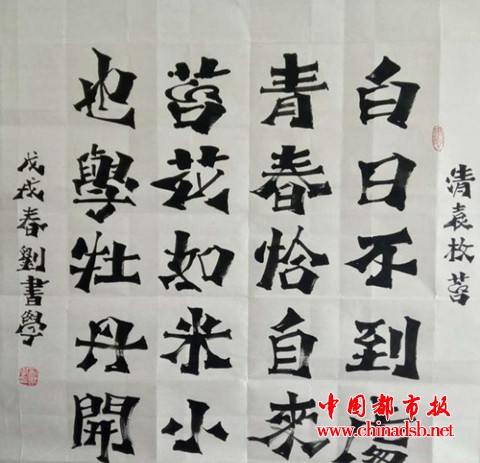 清袁枚苔
白日不到
青春恰自來
苔花如米小
也學牡丹開
戊戌春劉書學
中国都市报
www.chinadsb.net